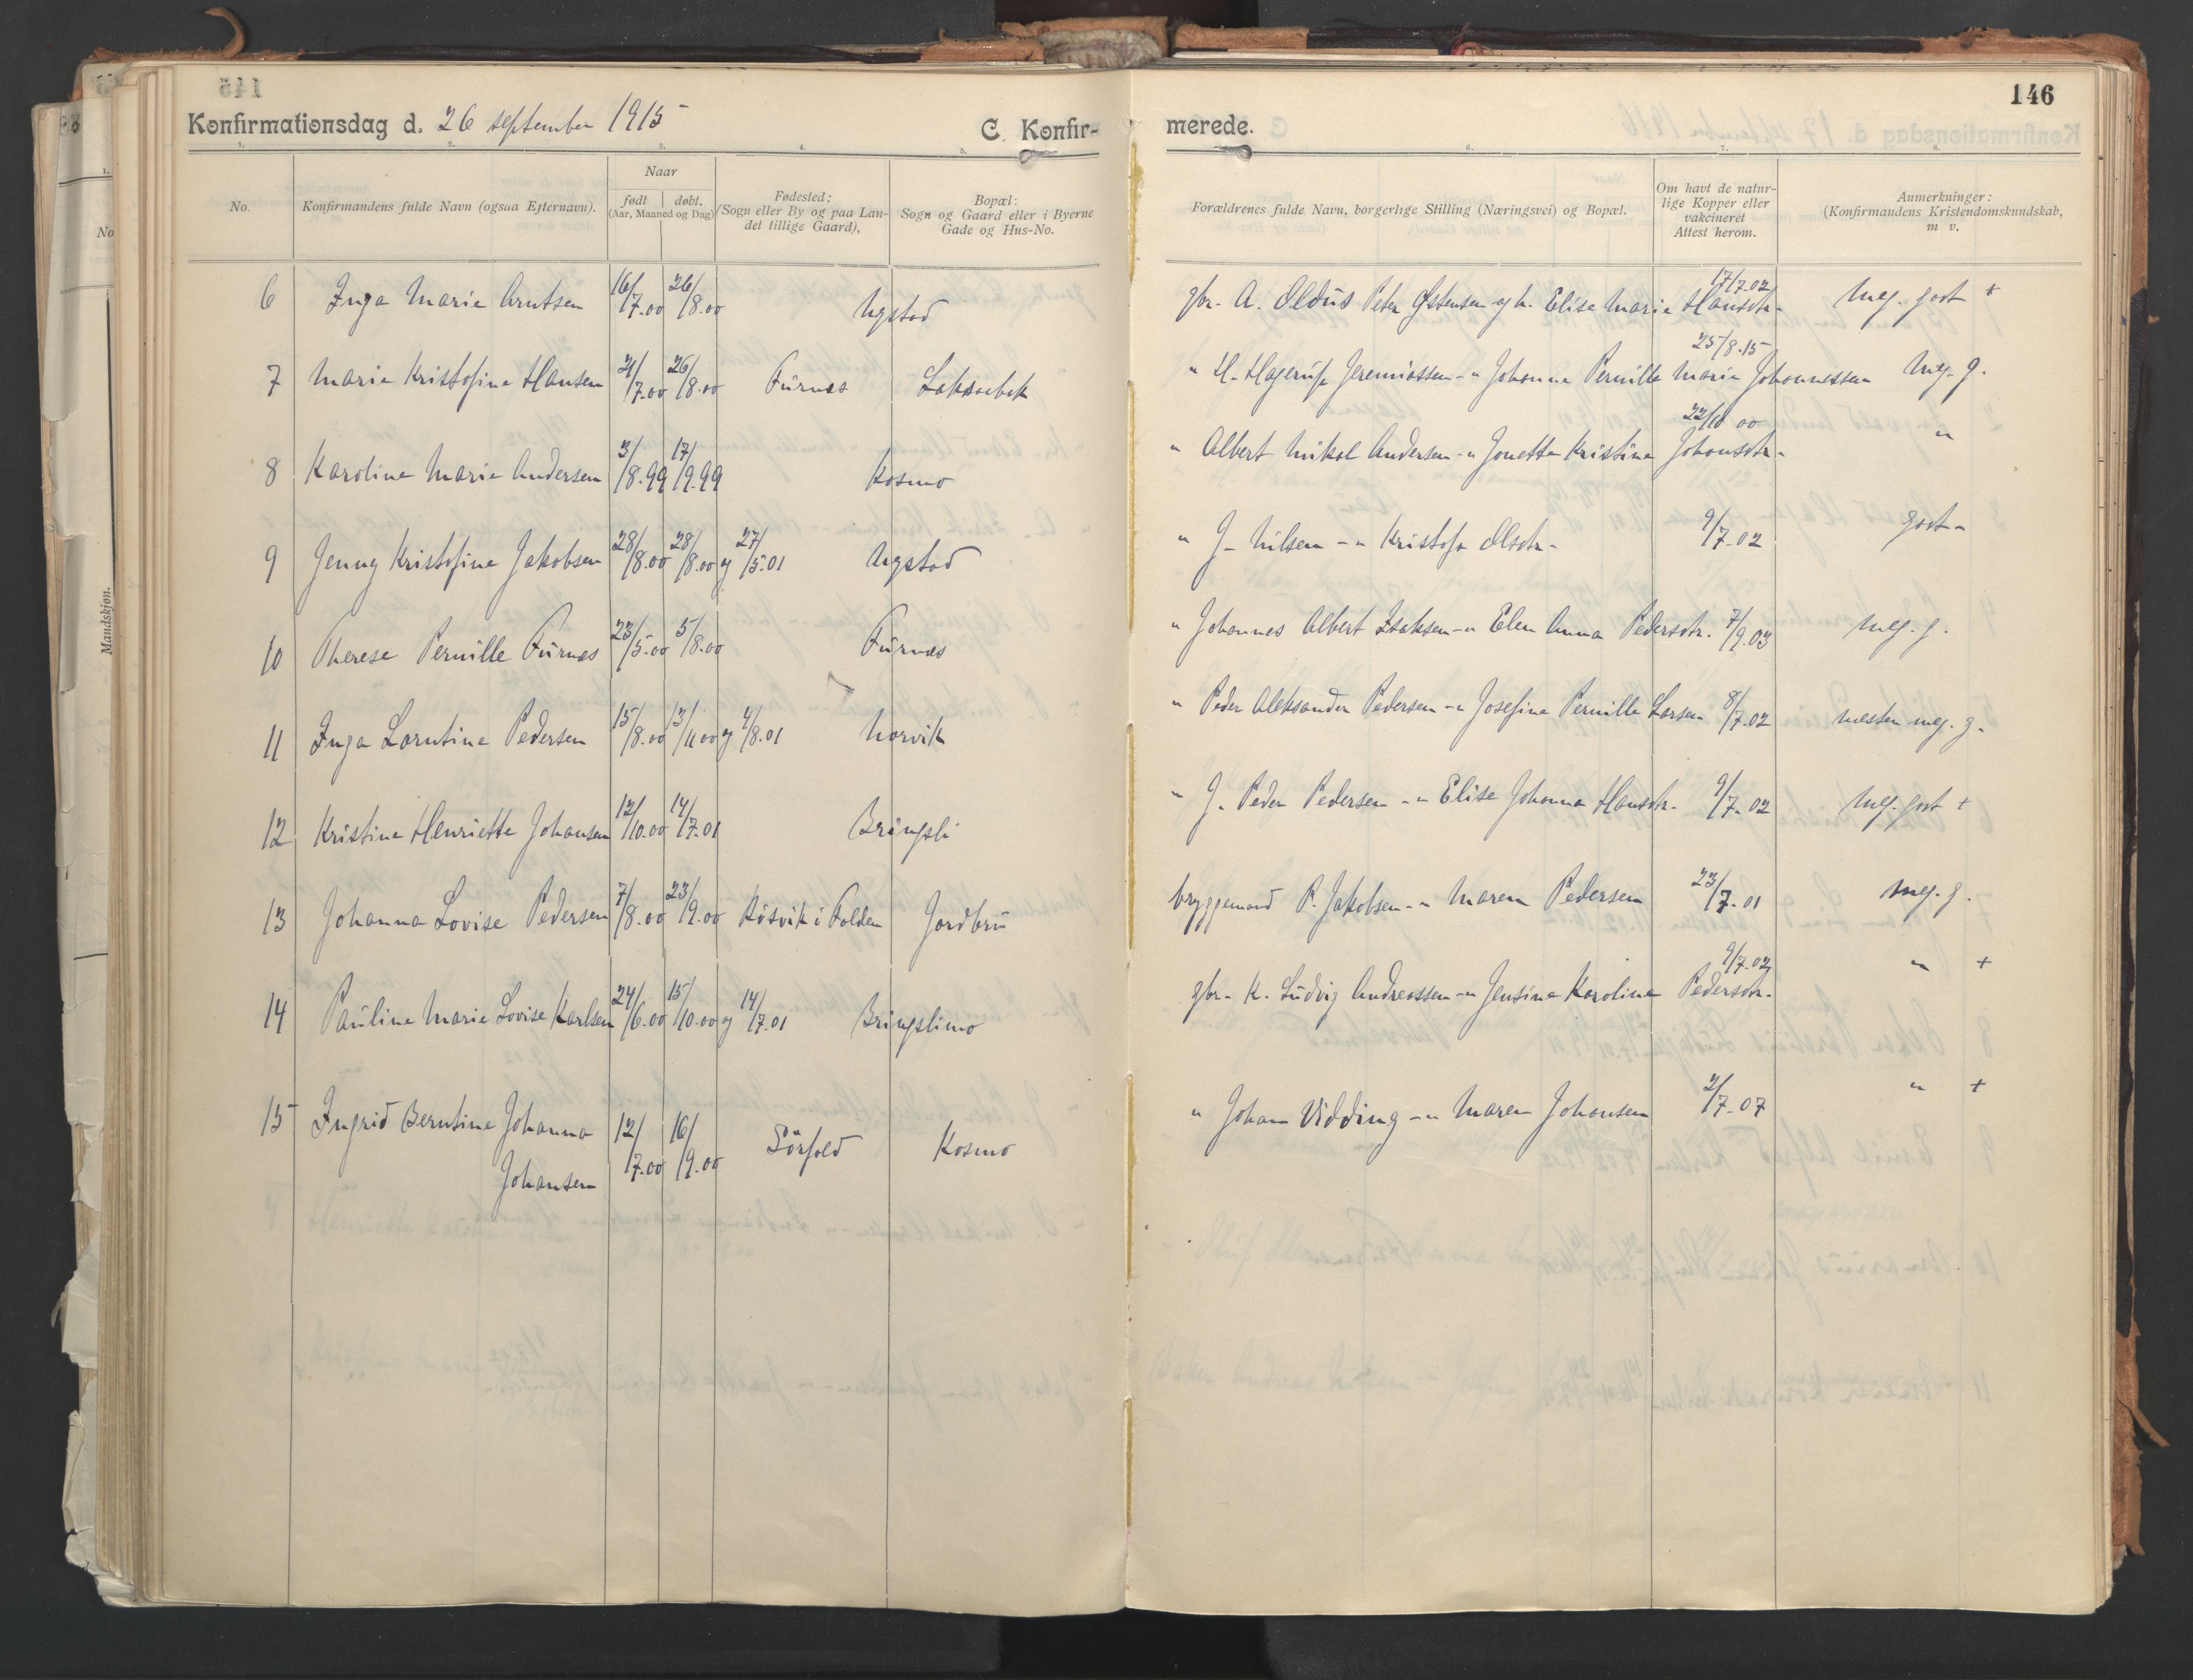 146
Konfirmationsdag d. 26 september 1915
C. Konfir-
merede.
1. 2. 3. 4. 5. 6. 7. 8.
No.
Konfirmandens fulde Navn (ogsaa Efternavn).
Naar
født døbt.
(Aar, Maaned og Dag)
Fødested:
(Sogn eller By og paa Lan-
det tillige Gaard).
Bopæl:
Sogn og Gaard eller i Byerne
Gade og Hus-No.
Forældrenes fulde Navn, borgerlige Stilling (Næringsvei) og Bopæl.
Om havt de natur-
lige Kopper eller
vakcineret
Attest herom.
Anmerkninger:
(Konfirmandens Kristendomskundskab,
m v.
Mandskjøn.
6 Inga Marie Arntsen 16/7.00 26/8.00 Ugstad gbr. A. Oldus Peter Østensen og h. Elise Marie Hansdtr. 17/7.02 Meg. godt +
7 Marie Kristofine Hansen 21/7.00 26/8.00 Furnes Laksaebek " H. Hagerup Jeremiassen - " Johanna Pernille Marie Johannessen 25/8.15 Meg. g.
8 Karoline Marie Andersen 3/8.99 17/9.99 Kosmo " Albert Mikal Andersen - " Jonette Kristine Johansdtr. 22/10 00 "
9 Jenny Kristofine Jakobsen 28/8.00 28/8.00 og 27/5.01 Ugstad " J. Nilsen - " Kristofa Olsdtr. 9/7.02 godt
10 Therese Pernille Furnes 23/5.00 5/8.00 Furnes " Johannes Albert Isaksen - " Elen Anna Pedersdtr. 7/9.03 Meg. g.
11 Inga Lorntine Pedersen 15/8.00 13/11 00 og 4/8.01 Norvik " Peder Aleksander Pedersen - " Josefine Pernille Larsen 8/7.02 næsten meg. g.
12 Kristine Henriette Johansen 12/10.00 14/7.01 Bringsli " J. Peder Pedersen - " Elise Johanna Hansdtr. 9/7.02 Meg. godt +
13 Johanna Lovise Pedersen 7/8.00 23/9.00 Røsvik i Folden Jordbru bryggemand P. Jakobsen - " Maren Pedersen 23/7.01 Meg. g.
14 Pauline Marie Lovise Karlsen 24/6.00 15/10.00 og 14/7.01 Bringslimo gbr. K. Ludvig Andreassen - " Jensine Karoline Pedersdtr. 9/7.02 " +
15 Ingrid Berntine Johanna 12/7.00 16/9.00 Sørfold Kosmo " Johan Vidding - " Maren Johansen 2/7.07 " +
Johansen